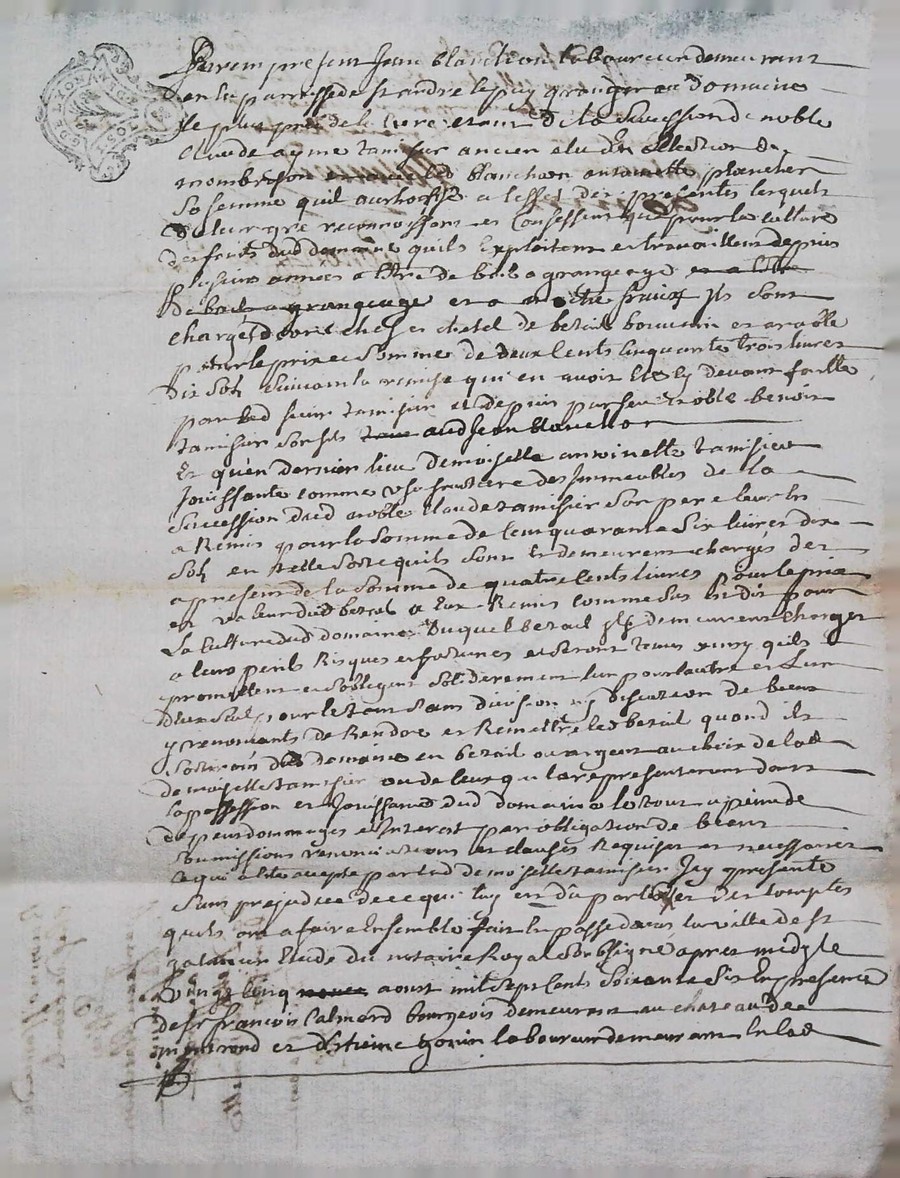 Furent presens Jean blanchon laboureur demeurant
en la parroisse de st andré le puy granger au domaine
le plus pres de la cure et de la succession de noble
claude ayme tamisier ancien elu en ellection de
monbrison et avec led blanchon antoinette plancher
sa femme quil authorise a leffet des presentes lesquels
de leur gre reconnoissent et confessent que pour la culture
des fonts dud domaine quils Exploitent et travaillent depuis
plusieurs années a titre de bail a grangeage et a titre
de bail a grangeage et a moitié fruix ils sont
chargés de bétail bouvain et arable
pour le prix et somme de deux cents cinquante trois livres
dix sols suivant la remise qui en avoit été cy devant faitte
par led sieur tamisier et depuis par feu noble benoit
tamisier son fils aud Jean blanchon
Et qu'en dernier lieu demoiselle antoinette tamisier
Jouissante comme usufruitiere des Immeubles de la
succession dud noble claude tamisier son pere leur
a Remis pour la somme de cent quarante six livres dix
sols en telle sorte quils sont et demeurent chargés
a present de la somme de quatre cents livres pour le prix
et valeur dud bétail a Eux Remis comme sus est dit pour
La culture dud domaine Duquel betail ils demeurent charger
a leurs perils Risques et fortunes et seront tenus ainsy quils
promettent et sobligent solidairement lun pour lautre et Lun
deux seul pour le tout sans division ny discution de biens
y renoncants de Rendre et Remettre led betail quand ils
sortiront dud domaine en betail ou argent au choix de lad
demoiselle tamisier ou de ceux qui la representeront dans
la possession et Jouissance dud domaine le tout a peine de
depens dommages et Interest par obligation de biens
soumissions renonciations et clauses Requises et necessaires
ce qui a été accepté par lad demoiselle tamisier Icy presente
sans prejudice de ce qui luy est dû par et des comptes
quils ont a faire Ensemble fait et passé dans la ville de st
galmier Etude du notaire Royal soussigné apres midy le
vingt cinq aoust mil sept cents soixante six En presence
de sr françois calmard bourgeois demeurant au chateau de
montrond et d'Etienne gonin laboureur demeurant En lad